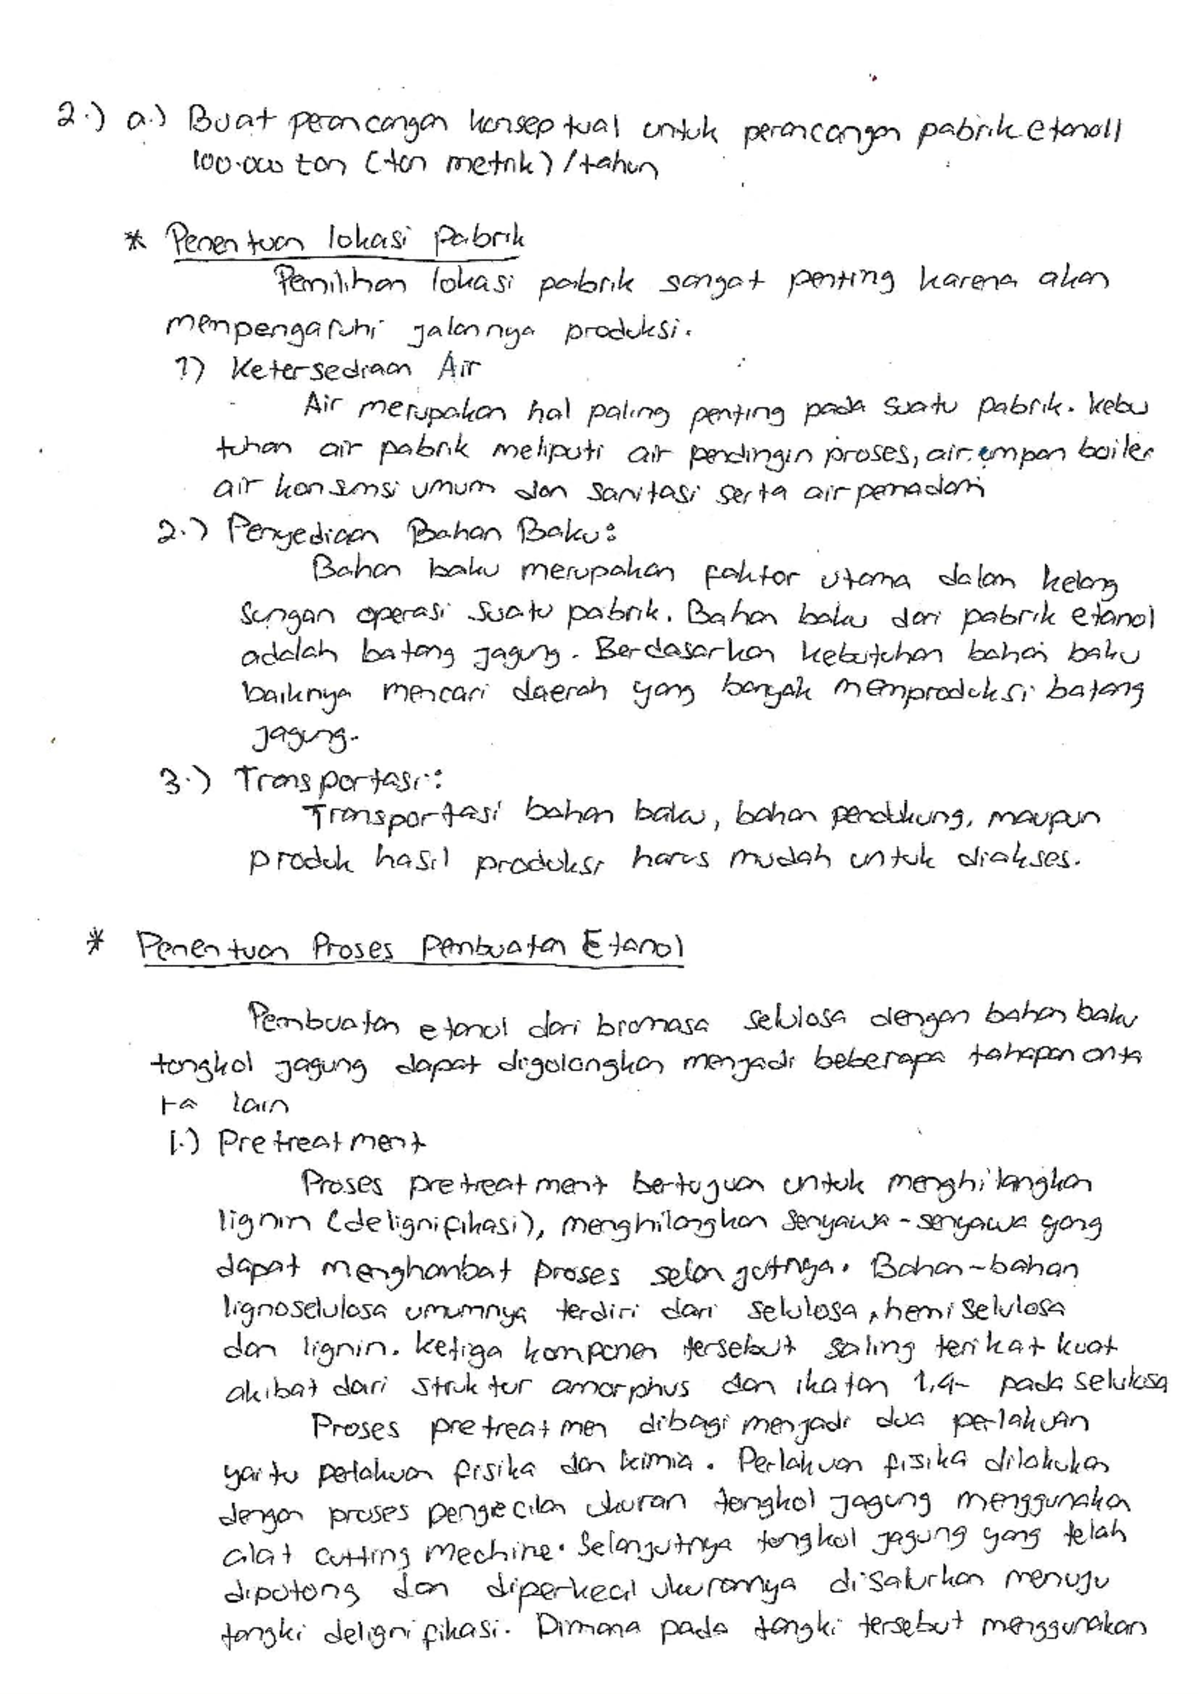 2.) a.) Buat perancangan konseptual untuk perancangan pabrik etanoll
100.000 ton (ton metrik) / tahun
* Penentuan lokasi pabrik
Pemilihan lokasi pabrik sangat penting karena akan
mempengaruhi jalannya produksi.
1) Ketersediaan Air
Air merupakan hal paling penting pada suatu pabrik. kebu
tuhan air pabrik meliputi air pendingin proses, air umpan boiler
air konsumsi umum dan sanitasi serta air pemadam
2.) Penyediaan Bahan Baku:
Bahan baku merupakan faktor utama dalam kelang
sungan operasi suatu pabrik. Bahan baku dari pabrik etanol
adalah batang jagung. Berdasarkan kebutuhan bahan baku
baiknya mencari daerah yang banyak memproduksi batang
jagung.
3.) Transportasi:
Transportasi bahan baku, bahan pendukung, maupun
produk hasil produksi harus mudah untuk diakses.
* Penentuan Proses Pembuatan Etanol
Pembuatan etanol dari biomasa selulosa dengan bahan baku
tongkol jagung dapat digolongkan menjadi beberapa tahapan anta
ra lain
1.) Pretreatment
Proses pretreatment bertujuan untuk menghilangkan
lignin (delignifikasi), menghilangkan senyawa-senyawa yang
dapat menghambat proses selanjutnya. Bahan-bahan
lignoselulosa umumnya terdiri dari selulosa, hemiselulosa
dan lignin. ketiga komponen tersebut saling terikat kuat
akibat dari struktur amorphus dan ikatan 1,4- pada selulosa
Proses pretreatmen dibagi menjadi dua perlakuan
yaitu perlakuan fisika dan kimia. Perlakuan fisika dilakukan
dengan proses pengecilan ukuran tongkol jagung menggunakan
alat cutting mechine. Selanjutnya tongkol jagung yang telah
dipotong dan diperkecil ukurannya disalurkan menuju
tangki delignifikasi. Dimana pada tangki tersebut menggunakan